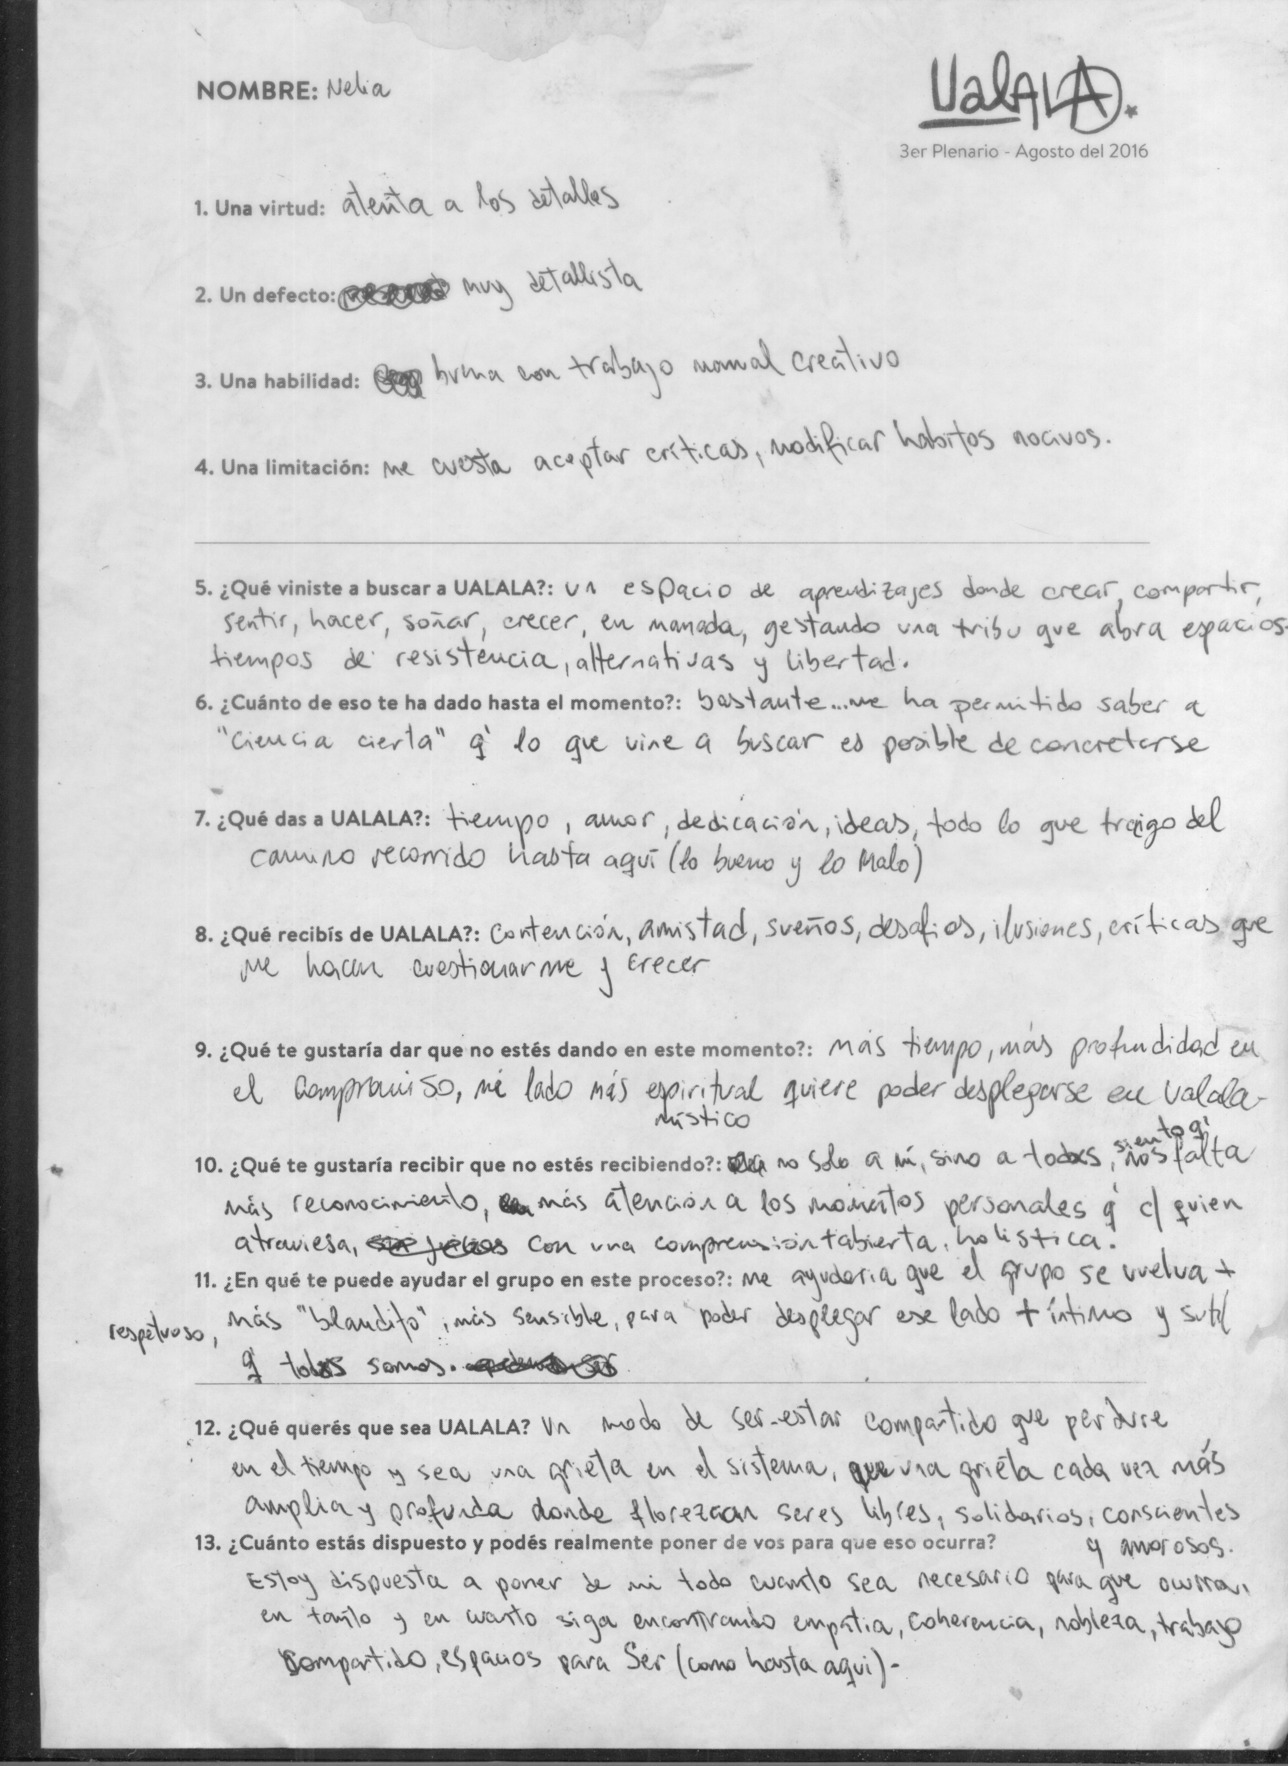 NOMBRE: Nelia
UalALA.
3er Plenario - Agosto del 2016
1. Una virtud: atenta a los detalles
2. Un defecto: muy detallista
3. Una habilidad: buena con trabajo manual creativo
4. Una limitación: me cuesta aceptar críticas, modificar habitos nocivos.
5. ¿Qué viniste a buscar a UALALA?: un espacio de aprendizajes donde crear, compartir,
sentir, hacer, soñar, crecer, en manada, gestando una tribu que abra espacios-
tiempos de resistencia, alternativas y libertad.
6. ¿Cuánto de eso te ha dado hasta el momento?: bastante... me ha permitido saber a
"ciencia cierta" q' lo que vine a buscar es posible de concretarse
7. ¿Qué das a UALALA?: tiempo, amor, dedicación, ideas, todo lo que traigo del
camino recorrido hasta aquí (lo bueno y lo malo)
8. ¿Qué recibís de UALALA?: contención, amistad, sueños, desafios, ilusiones, críticas que
me hacen cuestionarme y crecer
9. ¿Qué te gustaría dar que no estés dando en este momento?: más tiempo, más profundidad en
el compromiso, mi lado más espiritual quiere poder desplegarse en Ualala-
místico
siento q'
10. ¿Qué te gustaría recibir que no estés recibiendo?: no solo a mí, sino a todxs, nos falta
más reconocimiento, más atención a los momentos personales q' c/ quien
atraviesa, con una comprensión + abierta, holistica.
11. ¿En qué te puede ayudar el grupo en este proceso?: me ayudaria que el grupo se vuelva +
respetuoso, más "blandito", más sensible, para poder desplegar ese lado + íntimo y sutil
q' todxs somos.
12. ¿Qué querés que sea UALALA? Un modo de ser-estar compartido que perdure
en el tiempo y sea una grieta en el sistema, una grieta cada vez más
amplia y profunda donde florezcan seres libres, solidarios, conscientes
y amorosos.
13. ¿Cuánto estás dispuesto y podés realmente poner de vos para que eso ocurra?
Estoy dispuesta a poner de mi todo cuanto sea necesario para que ocurra,
en tanto y en cuanto siga encontrando empatia, coherencia, nobleza, trabajo
compartido, espacios para Ser (como hasta aqui)-